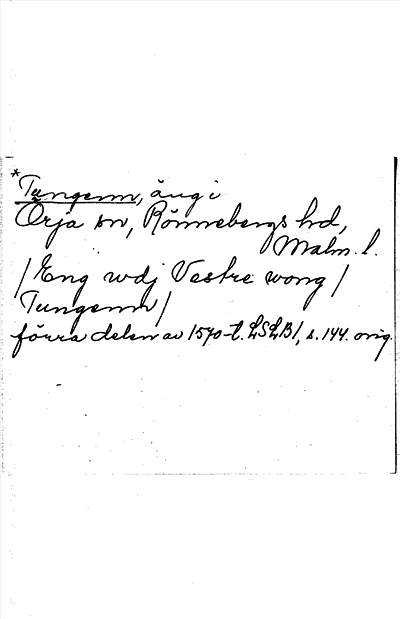 *Tungenn, äng i
Örja sn, Rönnebergs hd,
Malm. l.
/Eng wdj Vestre wong/
Tungenn/
förra delen av 1570-t. LSLB1, s. 144. orig.